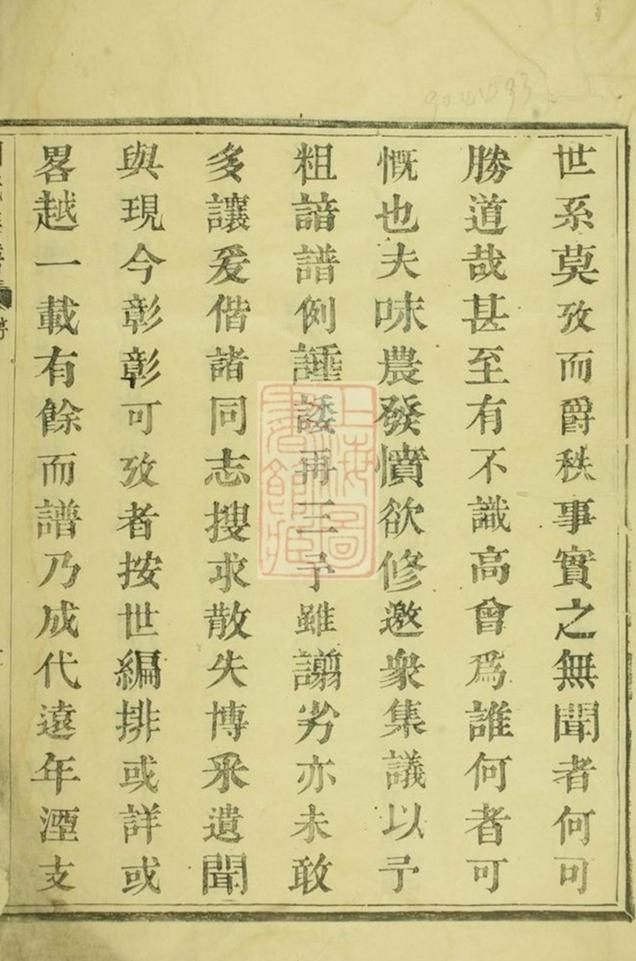 世系莫攷而爵秩事實之無聞者何可
勝道哉甚至有不識高曾爲誰何者可
慨也夫味農發憤欲修邀衆集議以予
粗諳譜例諈諉再三予雖譾劣亦未敢
多讓爰偕諸同志搜求散失博采遺聞
與現今彰彰可攷者按世編排或詳或
畧越一載有餘而譜乃成代遠年湮支
上海圖書館藏